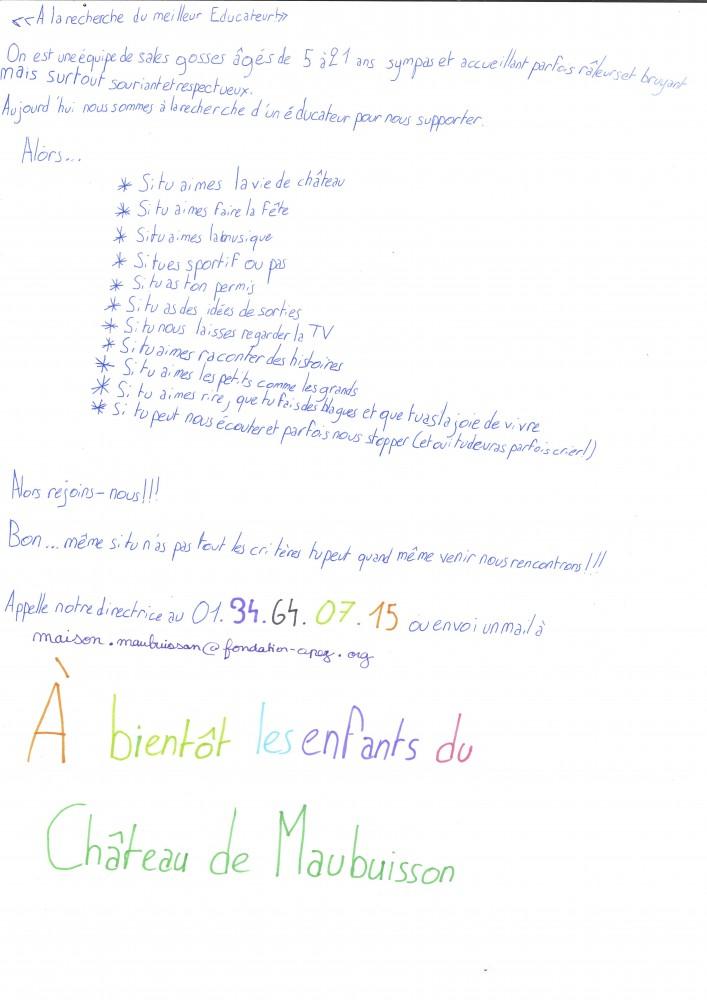 <<A la recherche du meilleur Educateur!>>
On est une équipe de sales gosses âgés de 5 à 21 ans sympas et accueillant parfois râleurs et bruyant
mais surtout souriant et respectueux.
Aujourd'hui nous sommes à la recherche d'un éducateur pour nous supporter.
Alors...
* Si tu aimes la vie de château
* Si tu aimes faire la fête
* Si tu aimes la musique
* Si tu es sportif ou pas
* Si tu as ton permis
* Si tu as des idées de sorties
* Si tu nous laisses regarder la TV
* Si tu aimes raconter des histoires
* Si tu aimes les petits comme les grands
* Si tu aimes rire, que tu fais des blagues et que tu as la joie de vivre
* Si tu peut nous écouter et parfois nous stopper (et oui tu devras parfois crier!)
Alors rejoins-nous!!!
Bon... même si tu n'as pas tout les critères tu peut quand même venir nous rencontrons!!!
Appelle notre directrice au 01.34.64.07.15 ou envoi un mail à
maison.maubuisson@fondation-apez.org
À bientôt les enfants du
Château de Maubuisson